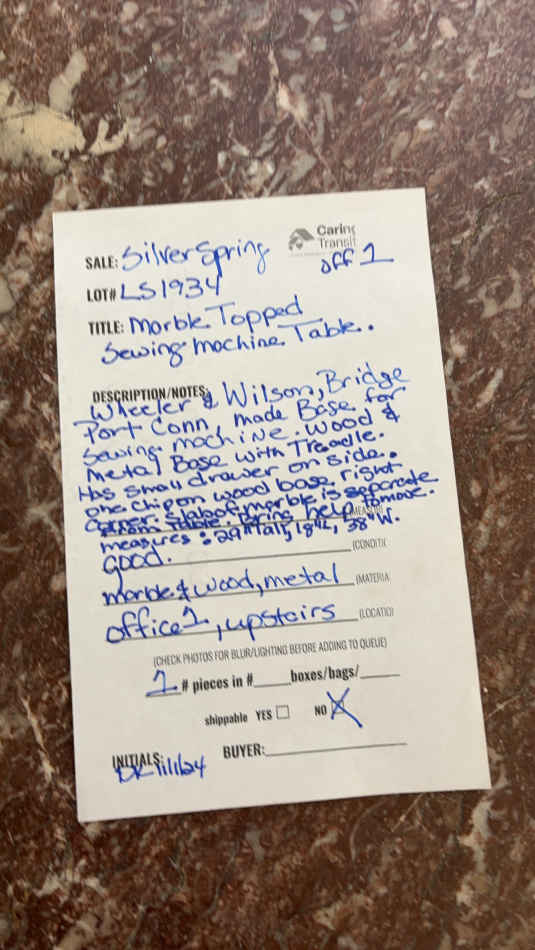 SALE: Silver Spring
Caring
Transit
off 1
LOT# LS1934
TITLE: Marble Topped
Sewing Machine Table.
DESCRIPTION/NOTES:
Wheeler & Wilson, Bridge
Port Conn, made Base for
Sewing machine. Wood &
Metal Base with Treadle.
Has small drawer on side.
one chip on wood base, right
corner. Slab of marble is separate
from Table. Bring help to move.
measures: 29" Tall, 18" L, 38" W.
good. (CONDITI
marble & wood, metal (MATERIA
office 1, upstairs (LOCATIO
(CHECK PHOTOS FOR BLUR/LIGHTING BEFORE ADDING TO QUEUE)
1 # pieces in # boxes/bags/
shippable YES NO X
INITIALS: BUYER: